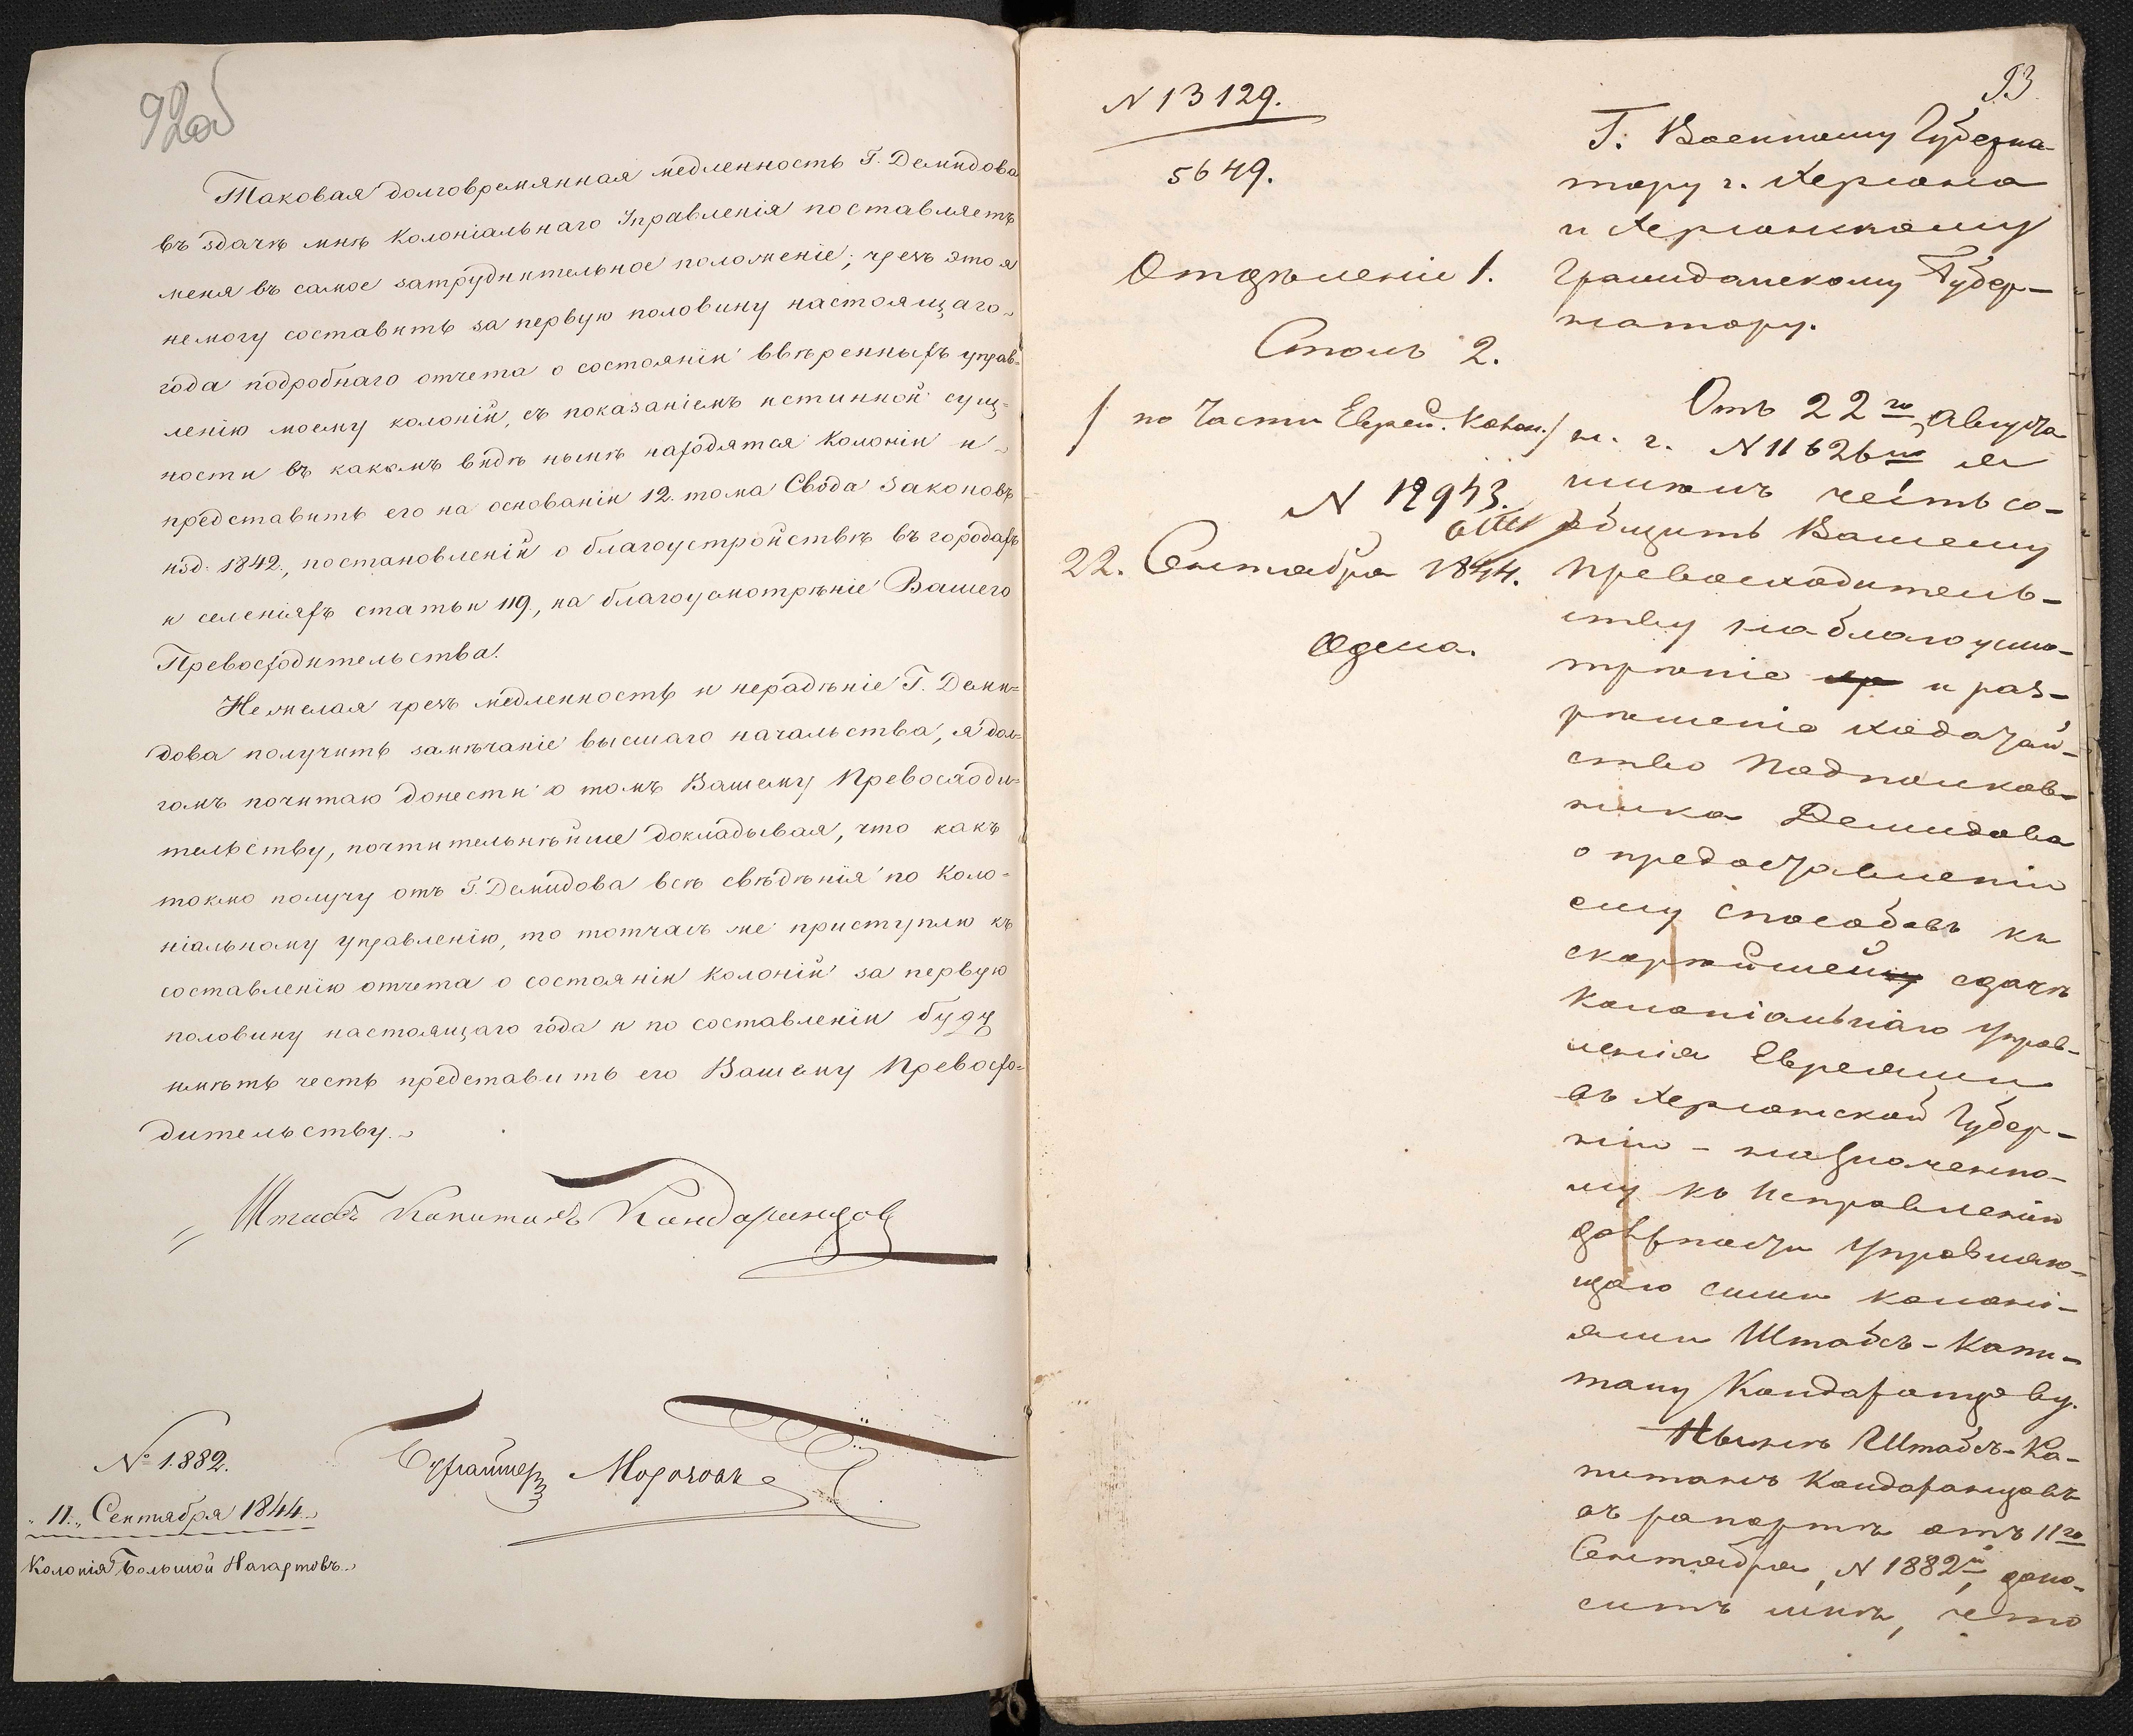 92об
Таковая долговремянная медленность Г. Демидова
въ здачѣ мнѣ Колоніальнаго Управленія поставляетъ
меня въ самое затруднительное положеніе; чрезъ это я
немогу составить за первую половину настоящаго
года подробнаго отчета о состояніи ввѣренныхъ управ=
ленію моему колоній, съ показаніемъ истинной сущ=
ности въ какомъ видѣ нынѣ находятся Колоніи и
представить его на основаніи 12. тома Свода Законовъ
изд: 1842., постановленій о благоустройствѣ въ городахъ
и селеніяхъ статьи 119, на благоусмотрѣніе Вашего
Превосходительства.
Нежелая чрезъ медленность и нерадѣніе Г. Деми=
дова получить замѣчаніе высшаго начальства, я дол=
гомъ почитаю донести о томъ Вашему Превосходи=
тельству, почтительнѣйше докладывая, что какъ
токмо получу отъ Г. Демидова всѣ свѣдѣнія по Коло=
ніальному управленію, то тотчасъ же приступлю къ
составленію отчета о состояніи колоній за первую
половину настоящаго года и по составленіи буду
имѣть честь представить его Вашему Превосхо=
дительству.
Штабсъ Капитанъ Кандаринцов
Бухгалтеръ
№ 1.882.
"11." Сентября 1844.
Колонія Большой Нагартовъ.
93
N 13129.
5649.
Отдѣленіе 1.
Столъ 2.
/ по части Еврей. Колон./
N 12943.
22. Сентября 1844.
Одесса.
Г. Военному Губерна-
тору г. Херсона
и Херсонскому
Гражданскому Губер-
натору.
Отъ 22го Августа
с. г. N 11626мъ я
имѣлъ честь со-
общить Вашему
Превосходитель-
ству на благоусмо-
трѣніе и раз-
рѣшеніе ходатай-
ство Подполков-
ника Демидова
о предоставленіи
ему способовъ къ
скорѣйшей сдачѣ
Колоніальнаго Управ-
ленія Евреями
въ Херсонской Губер-
ніи - назначенно-
му къ исправленію
должности Управляю-
щаго сими колоні-
ями Штабсъ-Капи-
тану Кандаранцову.
Нынѣ Штабсъ-Ка-
питанъ Кандаранцовъ
въ рапортѣ отъ 11го
Сентября, N 1882й, доно-
ситъ мнѣ, что